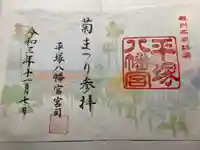 相州五之宮
菊まつり参拝
平塚八幡宮
平塚八幡宮宮司
令和三年十一月七日